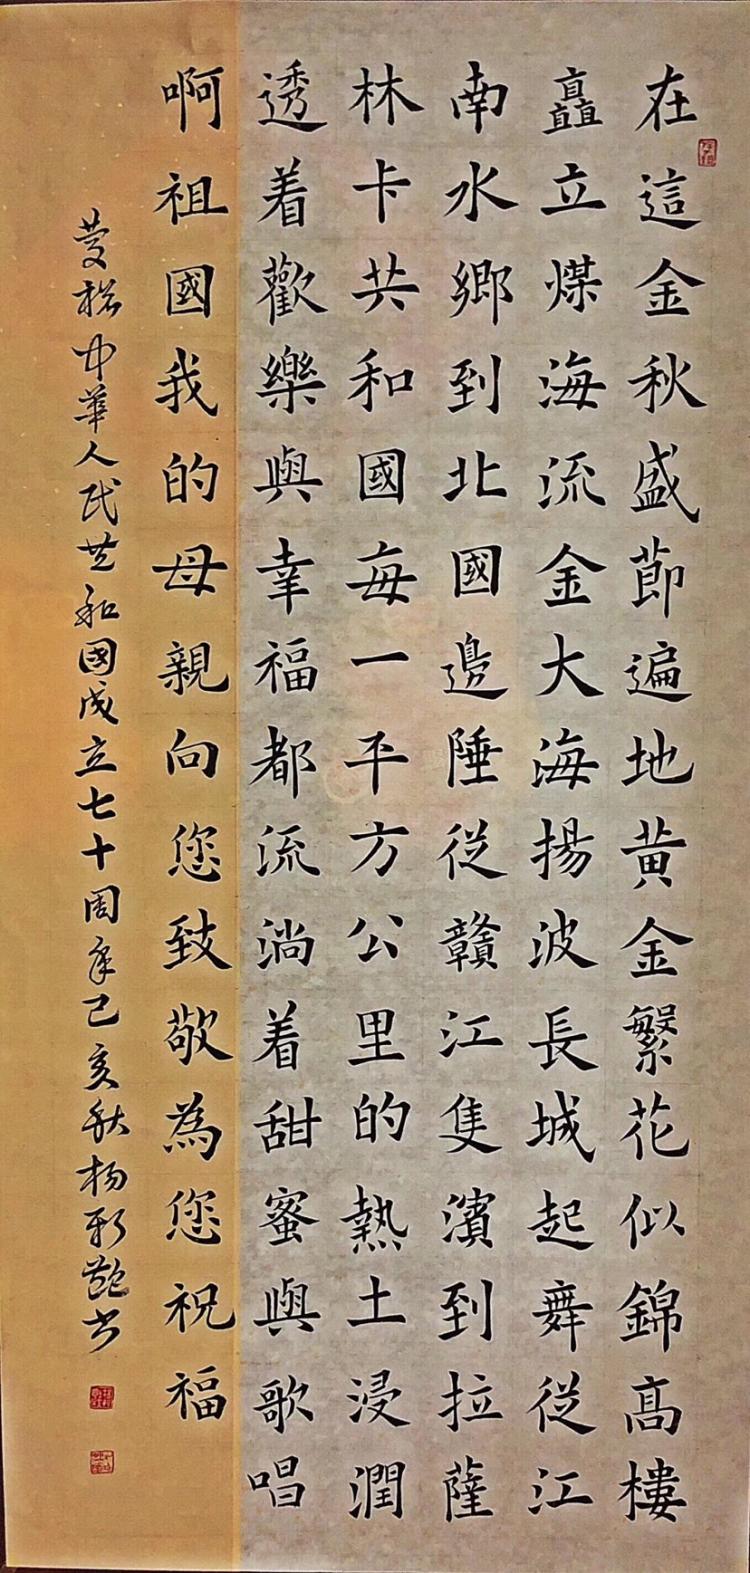 在這金秋盛節遍地黃金繁花似錦高樓
矗立煤海流金大海揚波長城起舞從江
南水鄉到北國邊陲從贛江隻濱到拉薩
林卡共和國每一平方公里的熱土浸潤
透着歡樂與幸福都流淌着甜蜜與歌唱
啊祖國我的母親向您致敬為您祝福
慶祝中華人民共和國成立七十周年己亥秋杨新艷书